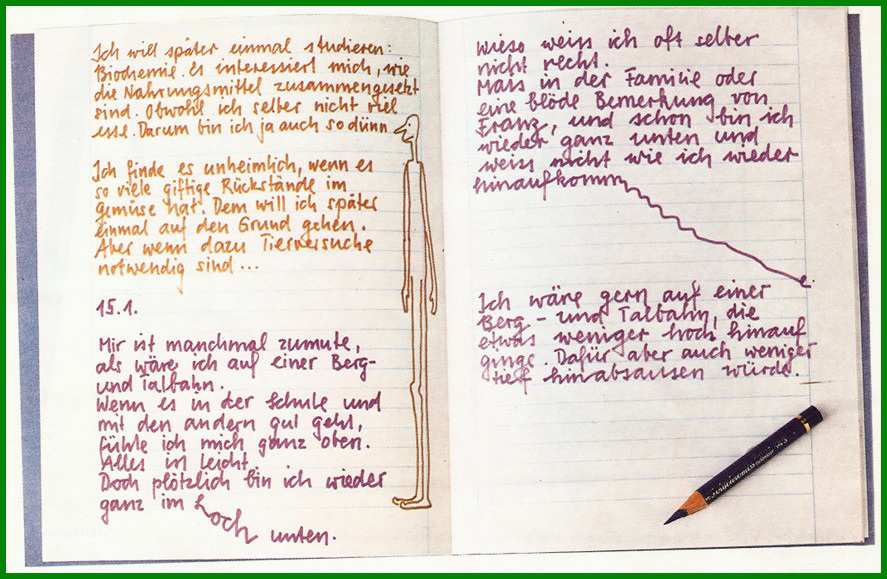 Ich will später einmal studieren:
Biochemie. Es interessiert mich, wie
die Nahrungsmittel zusammengesetzt
sind. Obwohl ich selber nicht viel
esse. Darum bin ich ja auch so dünn
Ich finde es unheimlich, wenn es
so viele giftige Rückstände im
Gemüse hat. Dem will ich später
einmal auf den Grund gehen.
Aber wenn dazu Tierversuche
notwendig sind...
15.1.
Mir ist manchmal zumute,
als wäre ich auf einer Berg-
und Talbahn.
Wenn es in der Schule und
mit den andern gut geht,
fühle ich mich ganz oben.
Alles in leicht.
Doch plötzlich bin ich wieder
ganz im Loch
unten.
Wieso weiss ich oft selber
nicht recht.
Mais in der Familie oder
eine blöde Bemerkung von
Franz, und schon bin ich
wieder ganz unten und
weiss nicht wie ich wieder
hinaufkomm
Ich wäre gern auf einer
Berg- und Talbahn, die
etwas weniger hoch hinauf
ginge. Dafür aber auch weniger
tief hinabsausen würde.